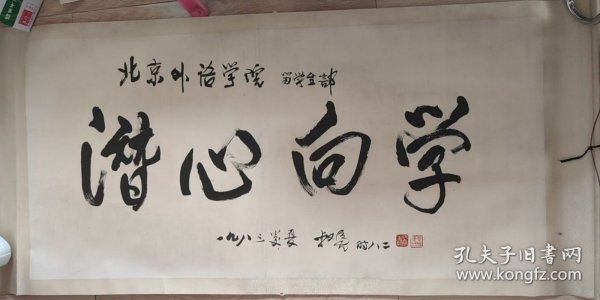 北京外语学院 留学生部
潜心向学
一九八三 时八二
孔夫子旧书网
www.kongfz.com